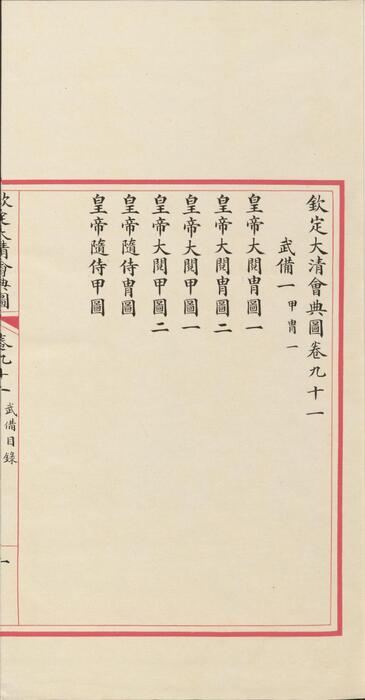 欽定大清會典圖卷九十一
武備一 甲冑一
皇帝大閱冑圖一
皇帝大閱冑圖二
皇帝大閱甲圖一
皇帝大閱甲圖二
皇帝隨侍冑圖
皇帝隨侍甲圖
欽定大清會典圖 卷九十一 武備目錄 一